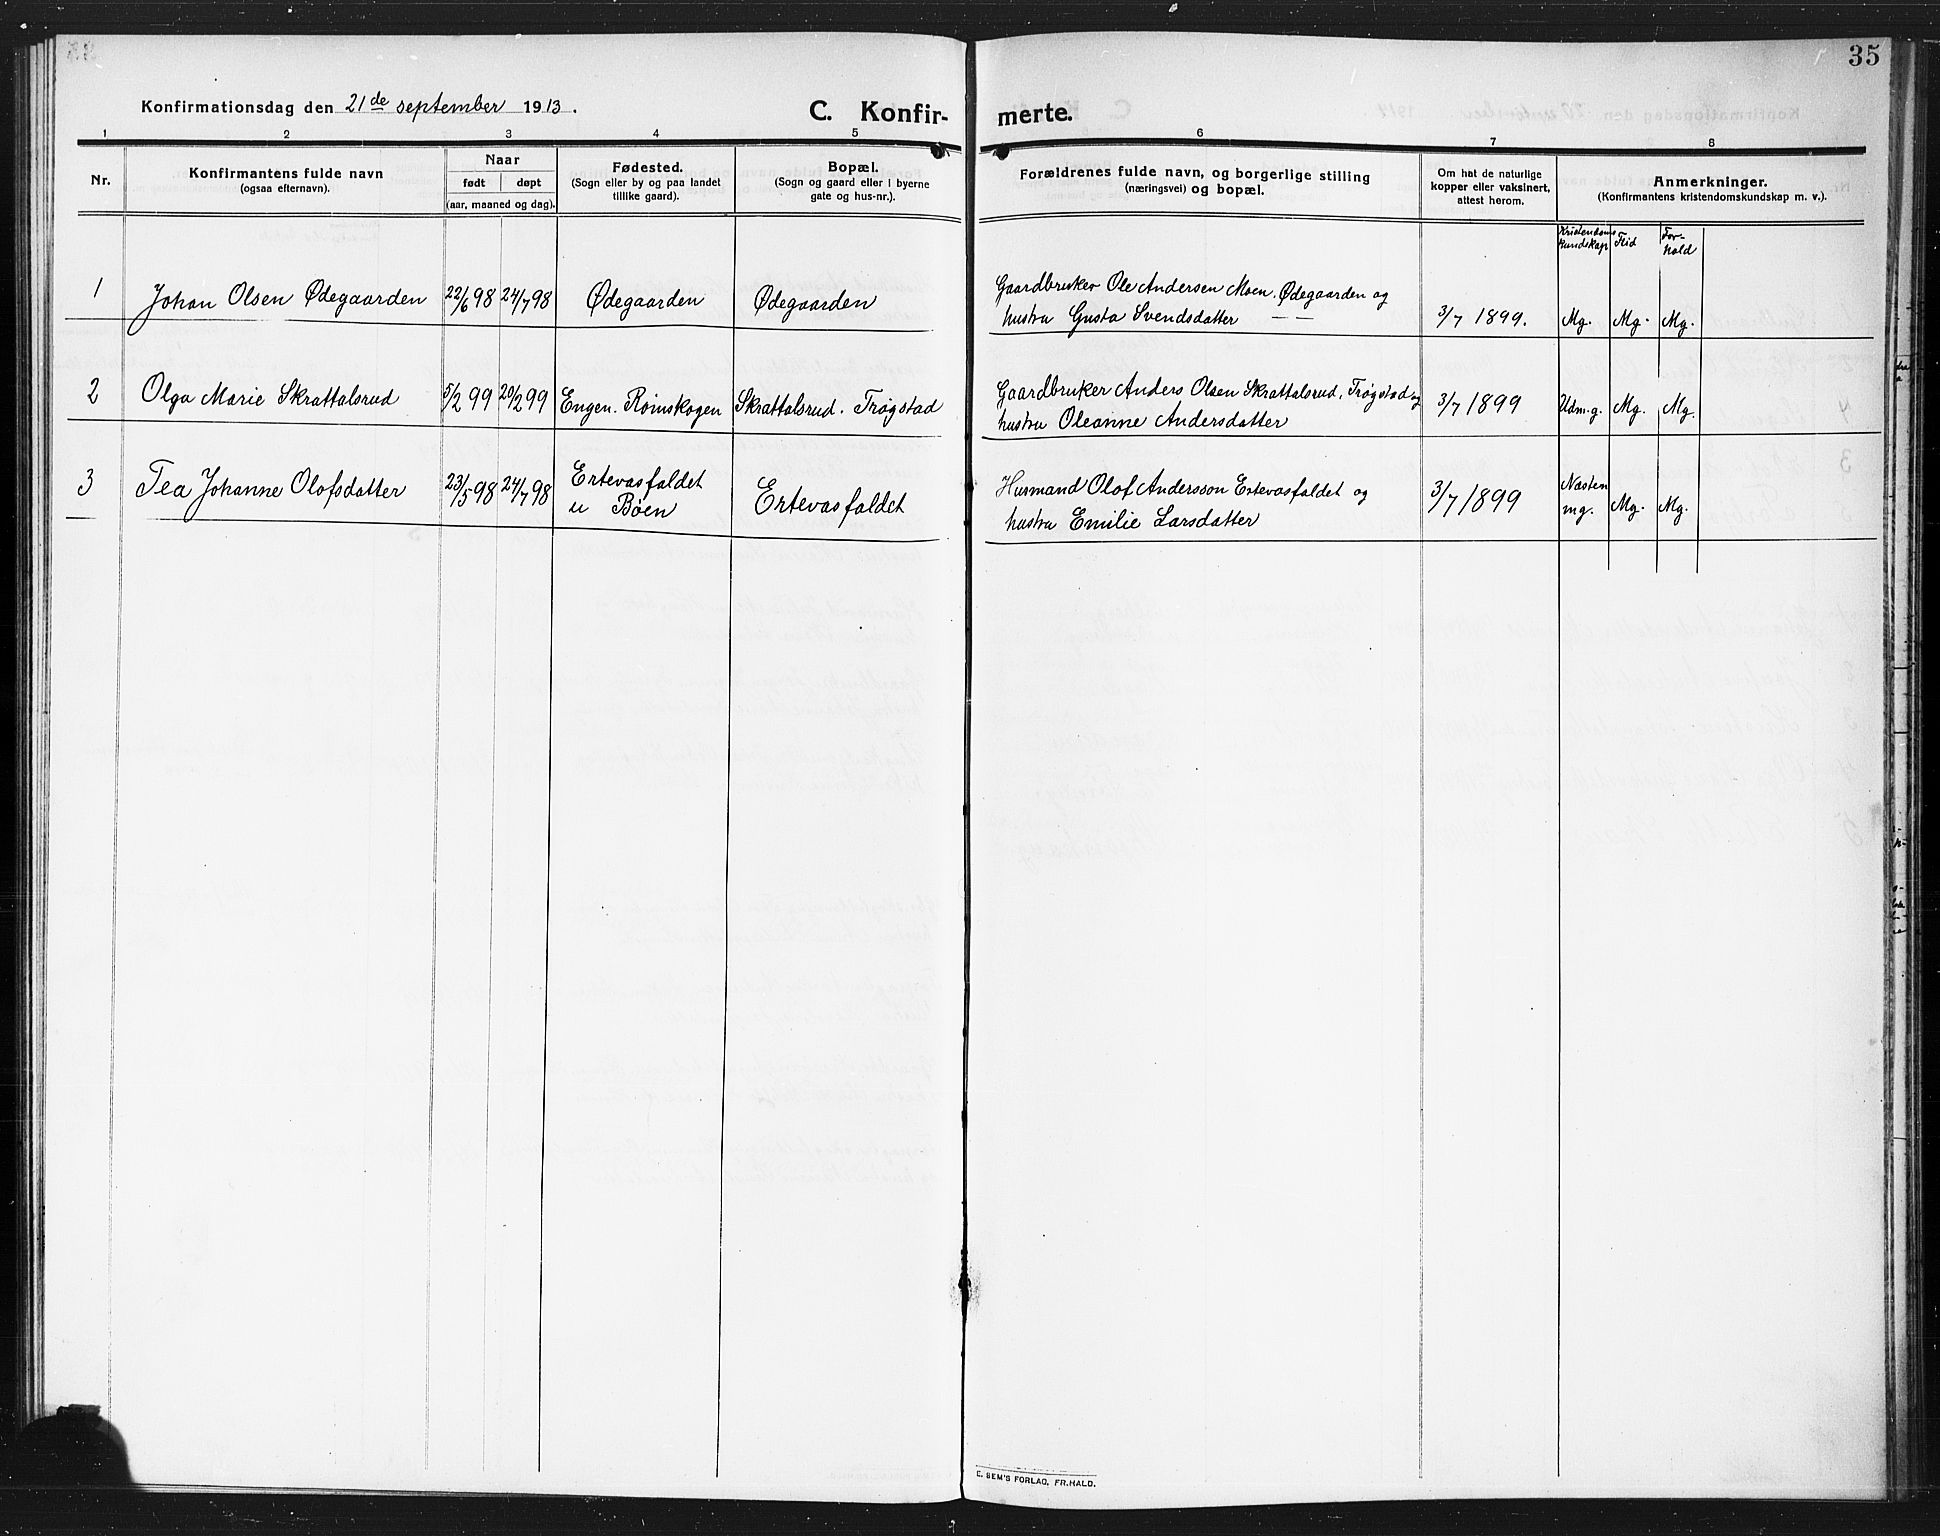 35
Konfirmationsdag den 21de september 1913.
C. Konfir-
merte.
1 2 3 4 5 6 7 8
Nr.
Konfirmantens fulde navn
(ogsaa efternavn).
Naar
født døpt
(aar, maaned og dag).
Fødested.
(Sogn eller by og paa landet
tillike gaard).
Bopæl.
(Sogn og gaard eller i byerne
gate og hus-nr.).
Forældrenes fulde navn, og borgerlige stilling
(næringsvei) og bopæl.
Om hat de naturlige
kopper eller vaksinert,
attest herom.
Anmerkninger.
(Konfirmantens kristendomskundskap m. v.).
Kristendoms
kundskap
Flid
For-
hold
1 Johan Olsen Ødegaarden 22/6 98 24/7 98 Ødegaarden Ødegaarden
Gaardbruker Ole Andersen Moen, Ødegaarden og
hustru Gusta Svendsdatter
3/7 1899. Mg. Mg. Mg.
2 Olga Marie Skrattalsrud 5/2 99 20/2 99 Engen. Rømskogen Skrattalsrud. Trøgstad
Gaardbruker Anders Olsen Skrattalsrud, Trøgstad og
hustru Oleanne Andersdatter
3/7 1899 Udm.g. Mg. Mg.
3 Tea Johanne Olofsdatter 23/5 98 24/7 98
Ertevasfaldet
u Bøen
Ertevasfaldet
Husmand Olof Andersson Ertevasfaldet og
hustru Emilie Larsdatter
3/7 1899
Næsten
mg. Mg. Mg.
E. SEM'S FORLAG, FR.HALD.